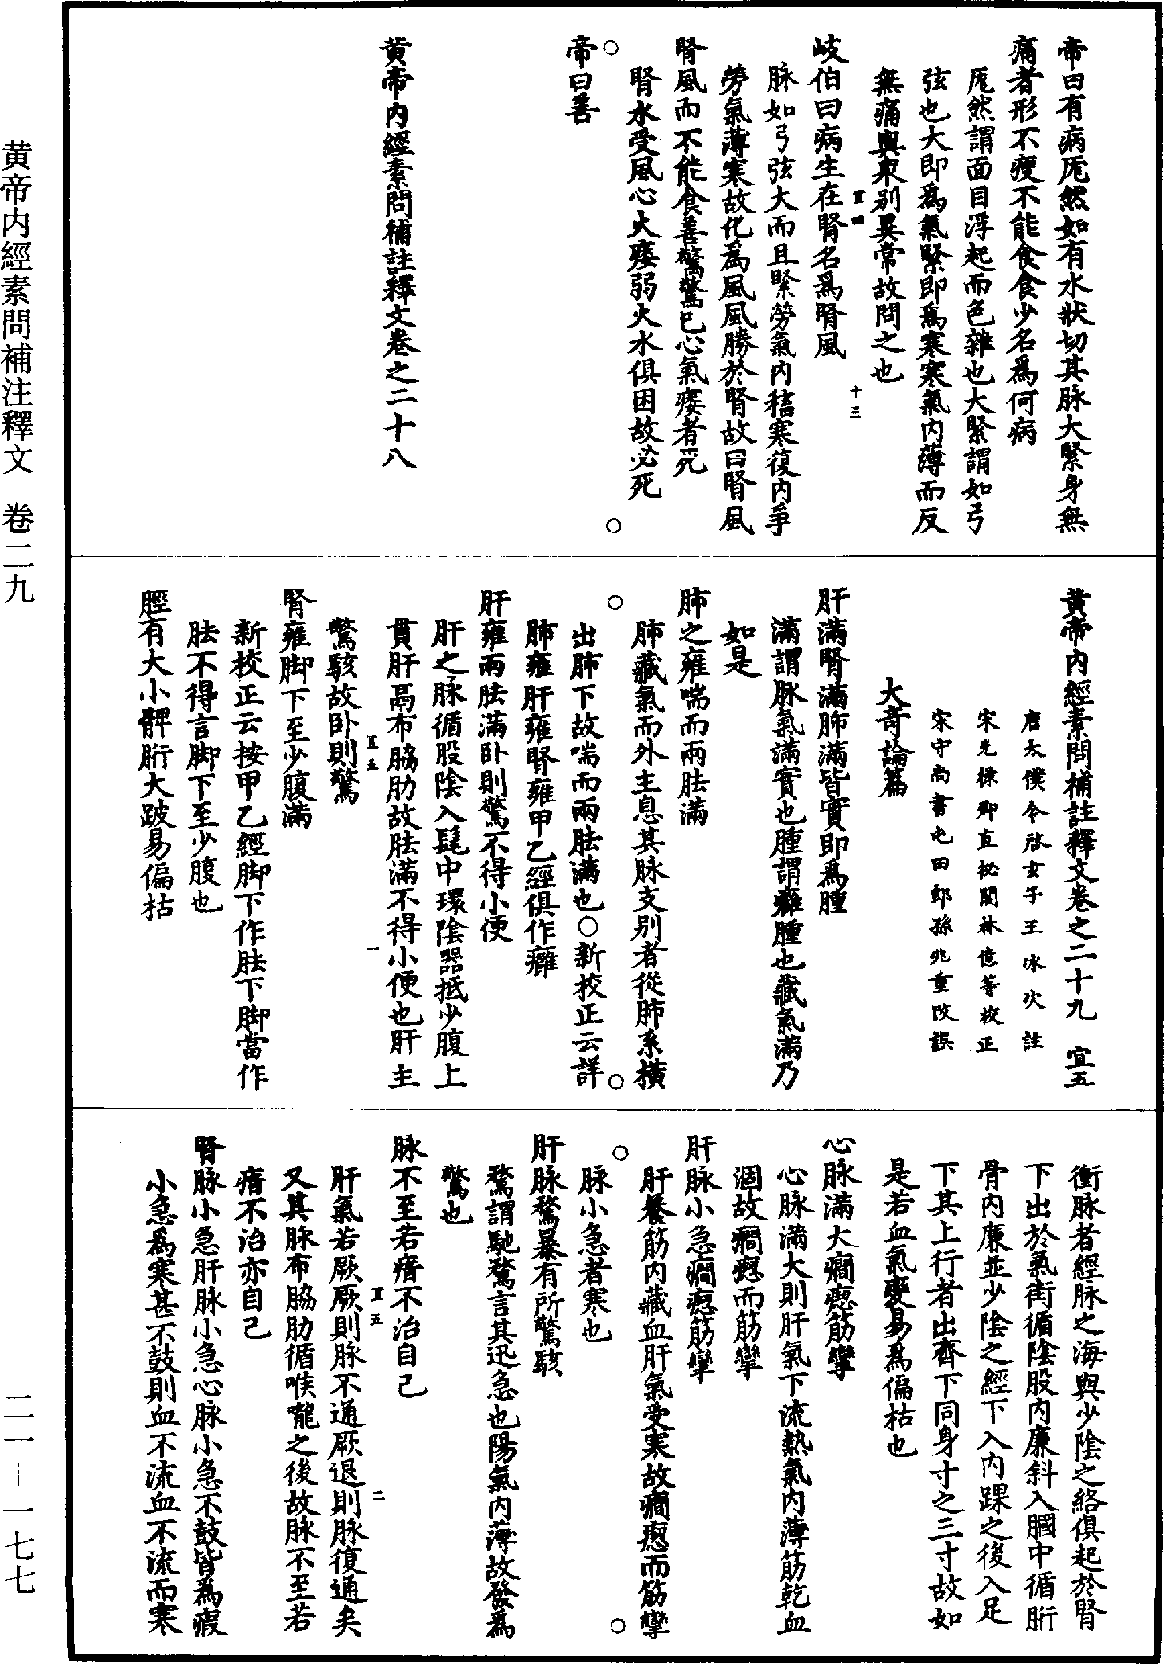 黄帝內經素問補注釋文　卷二九
二一—一七七
帝曰有病厖然如有水狀切其脉大緊身無
痛者形不瘦不能食食少名爲何病
厖然謂面目浮起而色雜也大緊謂如弓
弦也大即爲氣緊即爲寒寒氣內薄而反
無痛與衆別異常故問之也
宜四　十三
岐伯曰病生在腎名爲腎風
脉如弓弦大而且緊勞氣內稸寒復內爭
勞氣薄寒故化爲風風勝於腎故曰腎風
腎風而不能食善驚驚已心氣痿者死
腎水受風心火痿弱火水俱困故必死
帝曰善
黄帝內經素問補註釋文卷之二十八
黄帝內經素問補註釋文卷之二十九　宜五
唐太僕令啓玄子王冰次註
宋光祿卿直秘閣林億等校正
宋守尚書屯田郎孫兆重改誤
大奇論篇
肝滿腎滿肺滿皆實即爲腫
滿謂脉氣滿實也腫謂癰腫也藏氣滿乃
如是
肺之雍喘而兩胠滿
肺藏氣而外主息其脉支別者從肺系橫
出肺下故喘而兩胠滿也○新校正云詳
肺雍肝雍腎雍甲乙經俱作癰
肝雍兩胠滿臥則驚不得小便
肝之脉循股陰入髦中環陰器抵少腹上
貫肝鬲布脇肋故胠滿不得小便也肝主
宜五　一
驚駭故臥則驚
腎雍脚下至少腹滿
新校正云按甲乙經脚下作胠下脚當作
胠不得言脚下至少腹也
脛有大小髀胻大跛易偏枯
衝脉者經脉之海與少陰之絡俱起於腎
下出於氣街循陰股內廉斜入膕中循胻
骨內廉並少陰之經下入內踝之後入足
下其上行者出齊下同身寸之三寸故如
是若血氣變易爲偏枯也
心脉滿大癎瘛筋攣
心脉滿大則肝氣下流熱氣內薄筋乾血
涸故癎瘛而筋攣
肝脉小急癎瘛筋攣
肝養筋內藏血肝氣受寒故癎瘛而筋攣
脉小急者寒也
肝脉騖暴有所驚駭
騖謂馳騖言其迅急也陽氣內薄故發爲
驚也
脉不至若瘖不治自已
肝氣若厥厥則脉不通厥退則脉復通矣
宜五　二
又其脉布脇肋循喉嚨之後故脉不至若
瘖不治亦自已
腎脉小急肝脉小急心脉小急不鼓皆爲瘕
小急爲寒甚不鼓則血不流血不流而寒